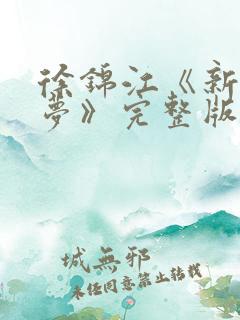 徐錦江《新
夢》完整版
城無邪
未经同意禁止转载